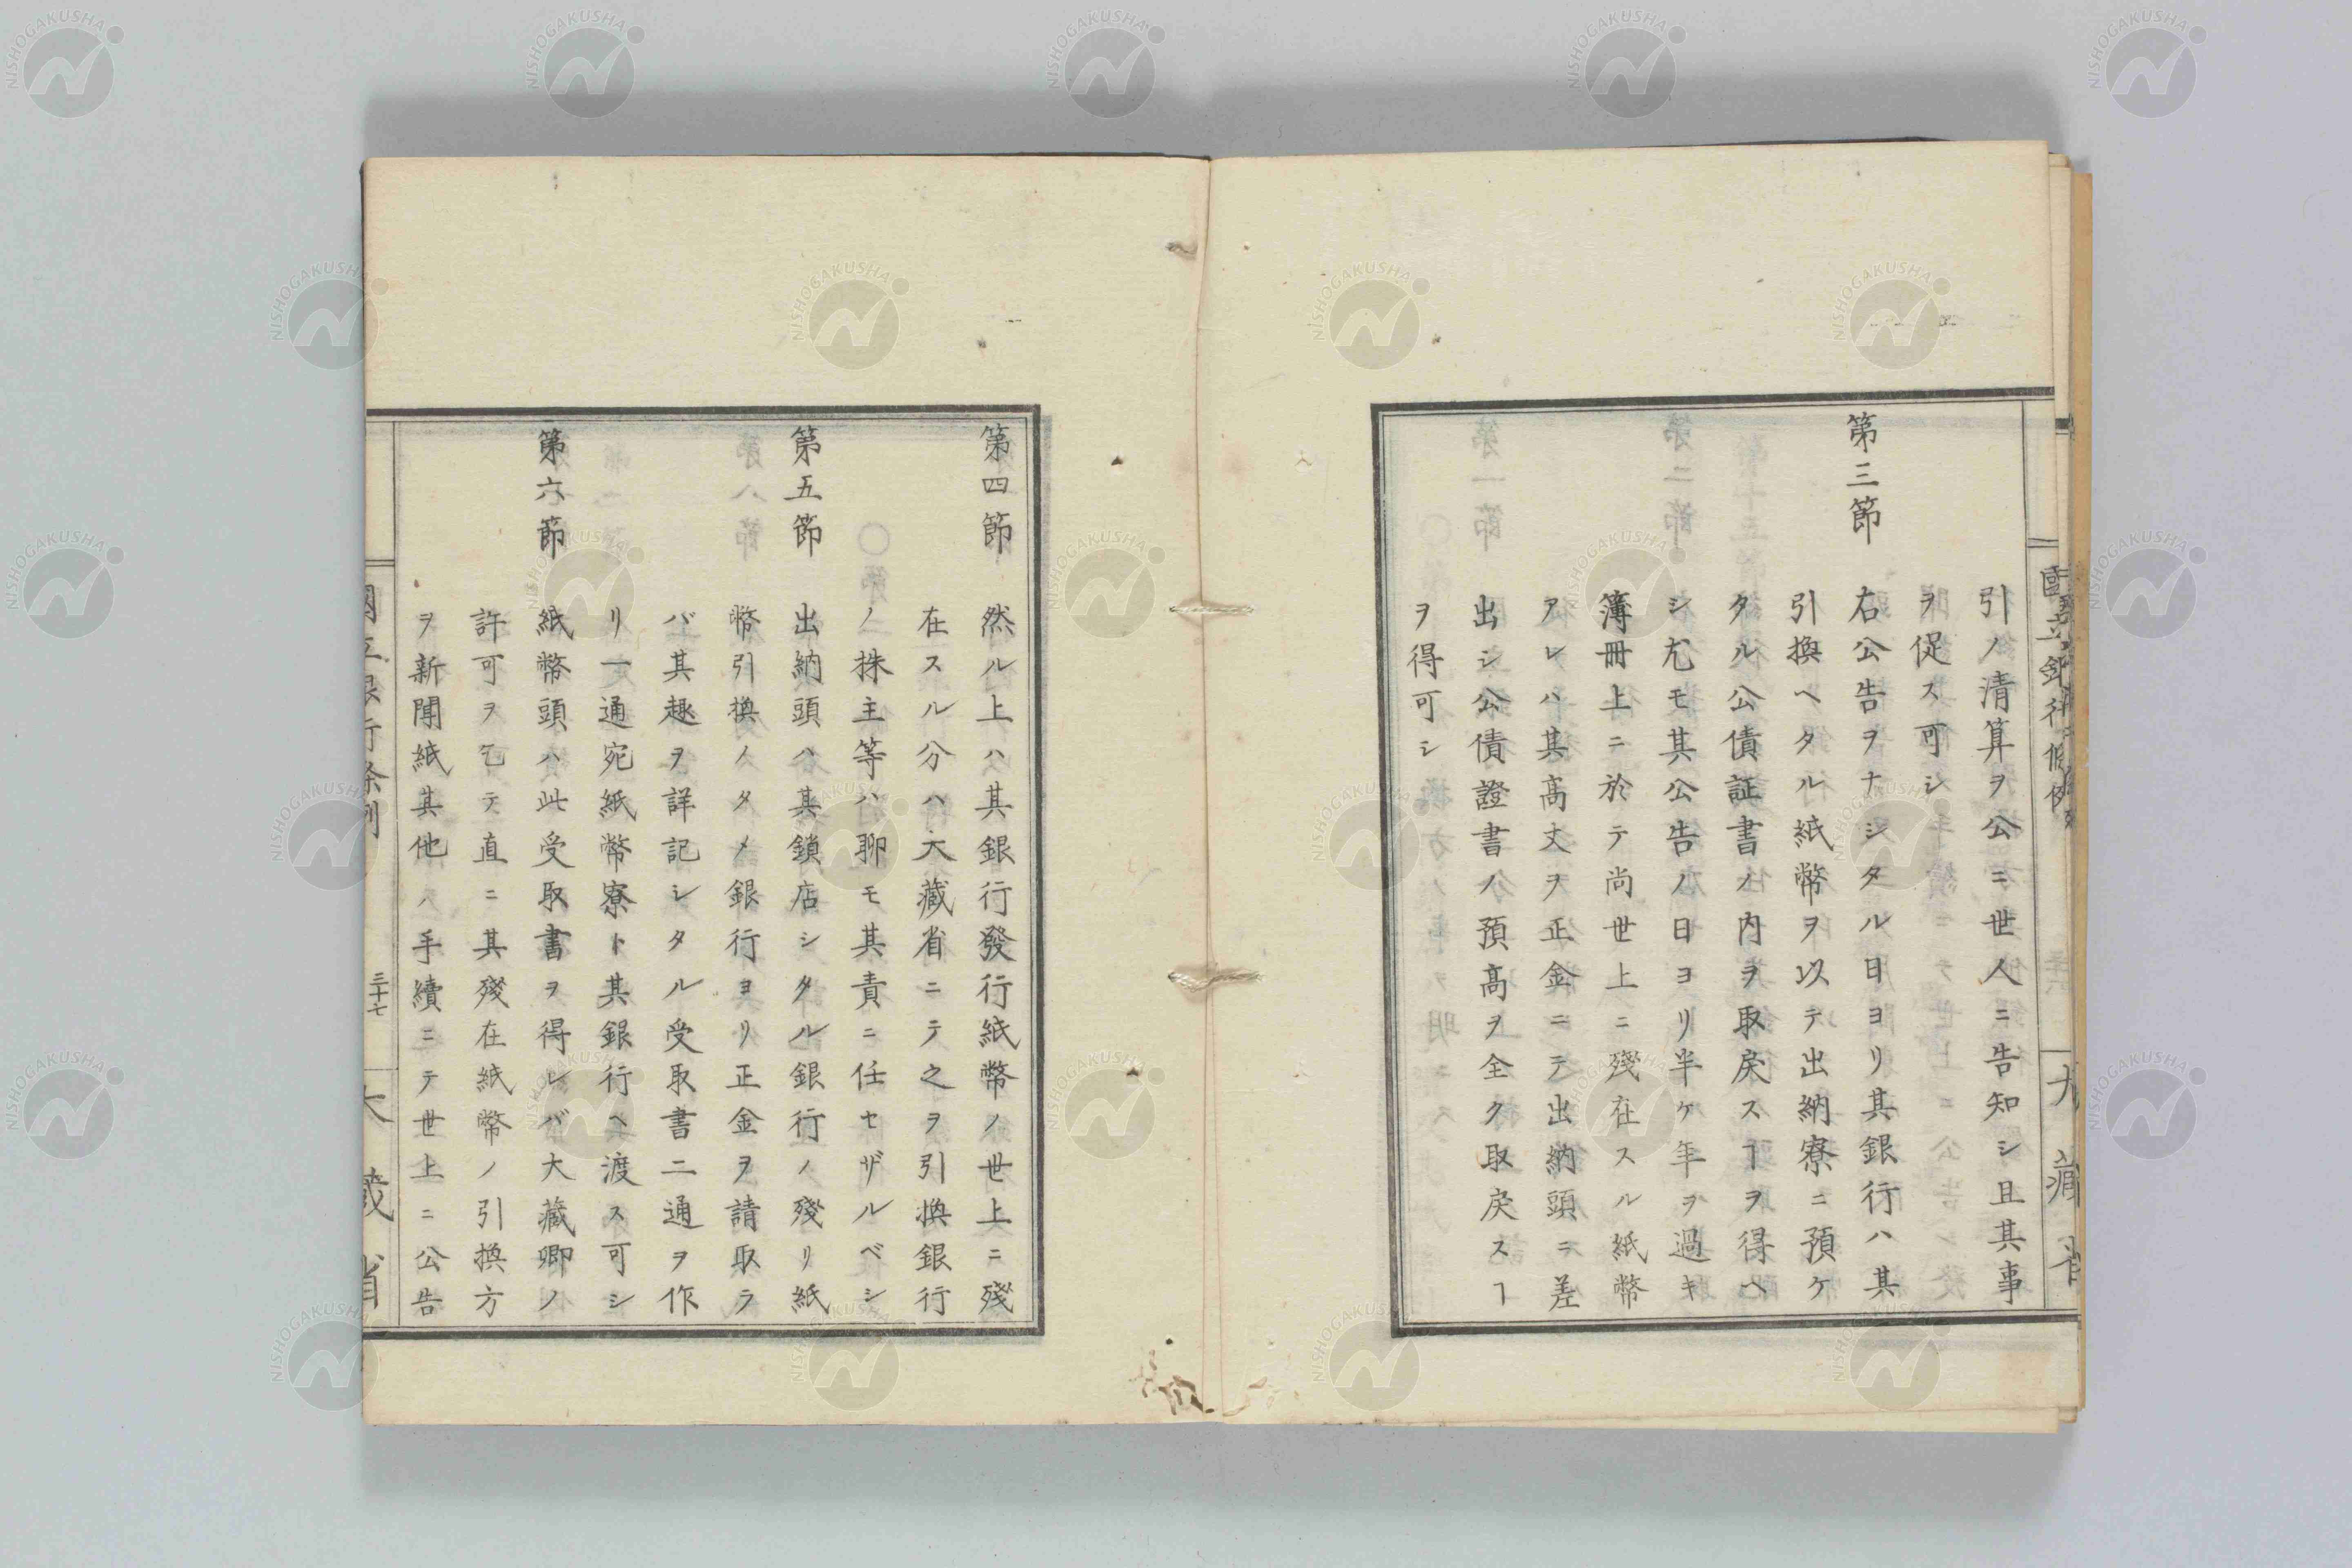 引ノ清算ヲ公ニ世人ニ告知シ且其事
ヲ促ス可シ
第三節 右公告ヲナシタル日ヨリ其銀行ハ其
引換ヘタル紙幣ヲ以テ出納寮ニ預ケ
タル公債証書ノ内ヲ取戻スヿヲ得ヘ
シ尤モ其公告ノ日ヨリ半ケ年ヲ過キ
簿冊上ニ於テ尚世上ニ殘在スル紙幣
アレハ其高丈ヲ正金ニテ出納頭ニ差
出シ公債證書ノ預高ヲ全ク取戻スヿ
ヲ得可シ
第四節 然ル上ハ其銀行發行紙幣ノ世上ニ殘
在スル分ハ大藏省ニテ之ヲ引換銀行
ノ株主等ハ聊モ其責ニ任セザルベシ
第五節 出納頭ハ其鎖店シタル銀行ノ殘リ紙
幣引換ノタメ銀行ヨリ正金ヲ請取ラ
バ其趣ヲ詳記シタル受取書二通ヲ作
リ一通宛紙幣寮ト其銀行ヘ渡ス可シ
第六節 紙幣頭ハ此受取書ヲ得レバ大藏卿ノ
許可ヲ乞テ直ニ其殘在紙幣ノ引換方
ヲ新聞紙其他ノ手續ニテ世上ニ公告
國立銀行條例
三十七
大藏省
NISHOGAKUSHA